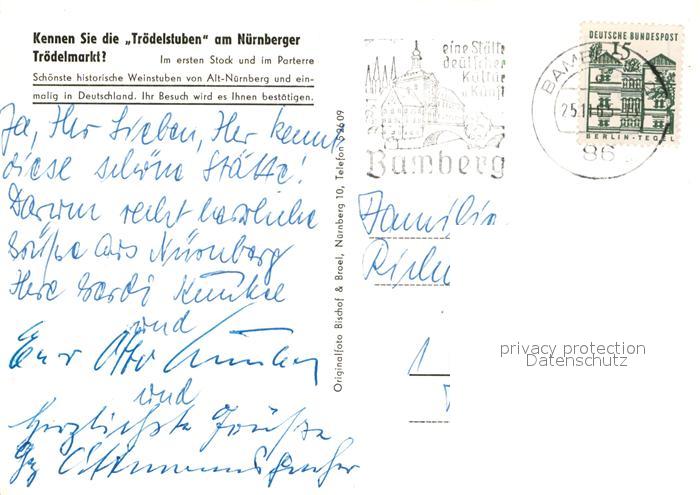 Kennen Sie die „Trödelstuben" am Nürnberger
Trödelmarkt? Im ersten Stock und im Parterre
Schönste historische Weinstuben von Alt-Nürnberg und ein-
malig in Deutschland. Ihr Besuch wird es Ihnen bestätigen.
Ja, Ihr Lieben, Ihr kennt
diese schöne Stätte!
Darum recht herzliche
Grüße aus Nürnberg
und
Euer Otto
und
herzlichste Grüße
Originalfoto Bischof & Broel, Nürnberg 10, Telefon
eine Stätte
deutscher
Kultur
u. Kunst
Bamberg
DEUTSCHE BUNDESPOST
15
BERLIN-TEGEL
BAMBERG
25.11.65
86
Familie
privacy protection
Datenschutz